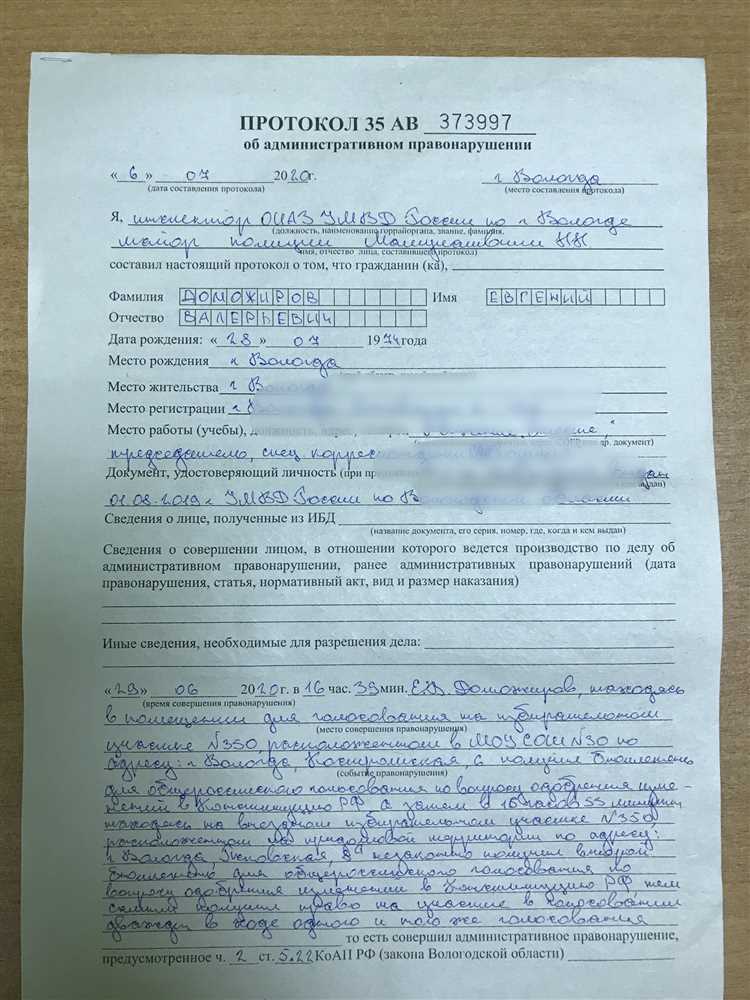 ПРОТОКОЛ 35 АВ 373997
об административном правонарушении
« 6 » 07 2020г. г Вологда
(дата составления протокола) (место составления протокола)
Я, инспектор ОИАЗ УМВД России по г Вологде
(должность, наименование горрайоргана, звание, фамилия,
майор полиции НН
имя, отчество лица, составившего протокол)
составил настоящий протокол о том, что гражданин (ка),
Фамилия ДОМОЖИРОВ Имя ЕВГЕНИЙ
Отчество ВАЛЕРЬЕВИЧ
Дата рождения: « 28 » 07 1974 года
Место рождения г Вологда
Место жительства г Волог
Место регистрации г Во
Место работы (учебы),
др. документ)
председатель, спец. коррес
Документ, удостоверяющий личность (при пр выдан
01.08.2019 г УМВД России по Вологодской области
Сведения о лице, полученные из ИБД
(название документа, его серия, номер, где, когда и кем выдан)
Сведения о совершении лицом, в отношении которого ведется производство по делу об
административном правонарушении, ранее административных правонарушений (дата
правонарушения, статья, нормативный акт, вид и размер наказания)
Иные сведения, необходимые для разрешения дела:
«29» 06 2020 г. в 16 час. 39 мин. Е.В. Доможиров, находясь
(время совершения правонарушения)
в помещении для голосования на избирательном
(место совершения правонарушения)
участке N350, расположенном в МОУ СОШ N30 по
адресу: г Вологда, Костромская, 6 получил бюллетень
(событие правонарушения)
для общероссийского голосования по вопросу одобрения изме-
нений в Конституцию РФ, а затем в 16 часов 55 минут
находясь на выездном избирательном участке N350,
расположенном на придомовой территории по адресу:
г Вологда Псковская, 8 незаконно получил второй
бюллетень для общероссийского голосования по
вопросу одобрения изменений в Конституцию РФ тем
самым получил право на участие в голосовании
дважды в ходе одного и того же голосования
то есть совершил административное правонарушение,
предусмотренное ч. 2 ст. 5.22 КоАП РФ (закона Вологодской области)